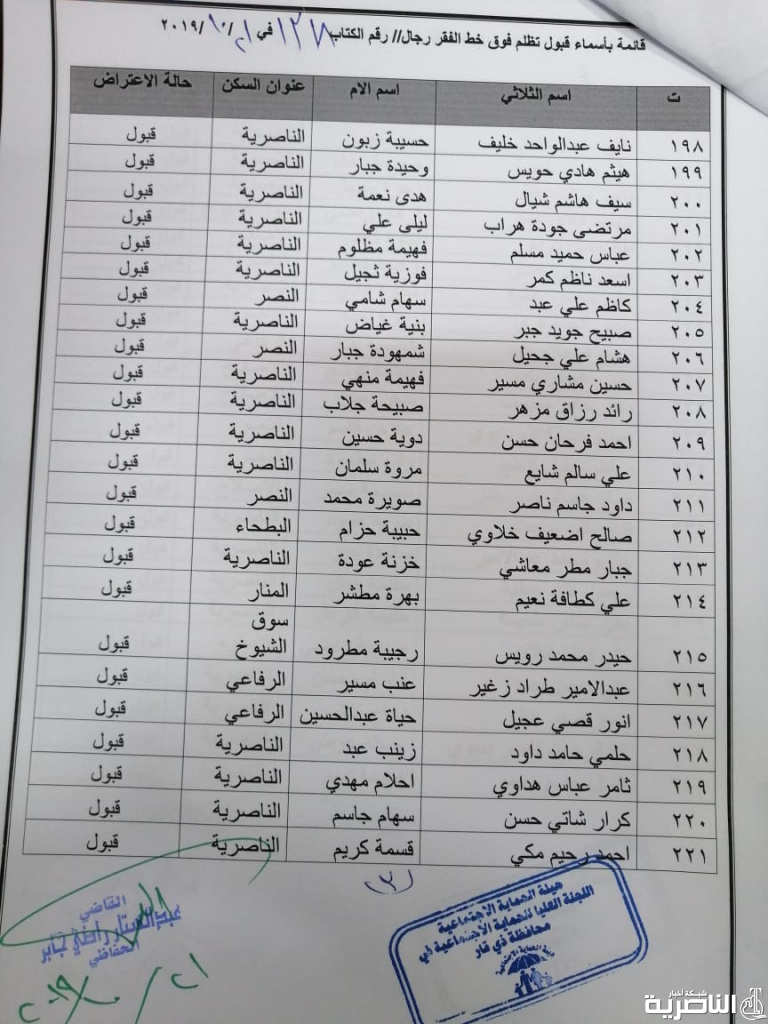 قائمة بأسماء قبول تظلم فوق خط الفقر رجال// رقم الكتاب ١٢٨ في ٢١/١٠/٢٠١٩
ت اسم الثلاثي اسم الام عنوان السكن حالة الاعتراض
١٩٨ نايف عبدالواحد خليف حسيبة زبون الناصرية قبول
١٩٩ هيثم هادي حويس وحيدة جبار الناصرية قبول
٢٠٠ سيف هاشم شيال هدى نعمة الناصرية قبول
٢٠١ مرتضى جودة هراب ليلى علي الناصرية قبول
٢٠٢ عباس حميد مسلم فهيمة مظلوم الناصرية قبول
٢٠٣ اسعد ناظم كمر فوزية ثجيل الناصرية قبول
٢٠٤ كاظم علي عبد سهام شامي النصر قبول
٢٠٥ صبيح جويد جبر بنية غياض الناصرية قبول
٢٠٦ هشام علي جحيل شمهودة جبار النصر قبول
٢٠٧ حسين مشاري مسير فهيمة منهي الناصرية قبول
٢٠٨ رائد رزاق مزهر صبيحة جلاب الناصرية قبول
٢٠٩ احمد فرحان حسن دوية حسين الناصرية قبول
٢١٠ علي سالم شايع مروة سلمان الناصرية قبول
٢١١ داود جاسم ناصر صويرة محمد النصر قبول
٢١٢ صالح اضعيف خلاوي حبيبة حزام البطحاء قبول
٢١٣ جبار مطر معاشي خزنة عودة الناصرية قبول
٢١٤ علي كطافة نعيم بهرة مطشر المنار قبول
٢١٥ حيدر محمد رويس رجيبة مطرود سوق الشيوخ قبول
٢١٦ عبدالامير طراد زغير عنب مسير الرفاعي قبول
٢١٧ انور قصي عجيل حياة عبدالحسين الرفاعي قبول
٢١٨ حلمي حامد داود زينب عبد الناصرية قبول
٢١٩ ثامر عباس هداوي احلام مهدي الناصرية قبول
٢٢٠ كرار شاتي حسن سهام جاسم الناصرية قبول
٢٢١ احمد رحيم مكي قسمة كريم الناصرية قبول
هيئة الحماية الاجتماعية
اللجنة العليا للحماية الاجتماعية في
محافظة ذي قار
القاضي
٢١/١٠/٢٠١٩
شبكة أخبار
الناصرية